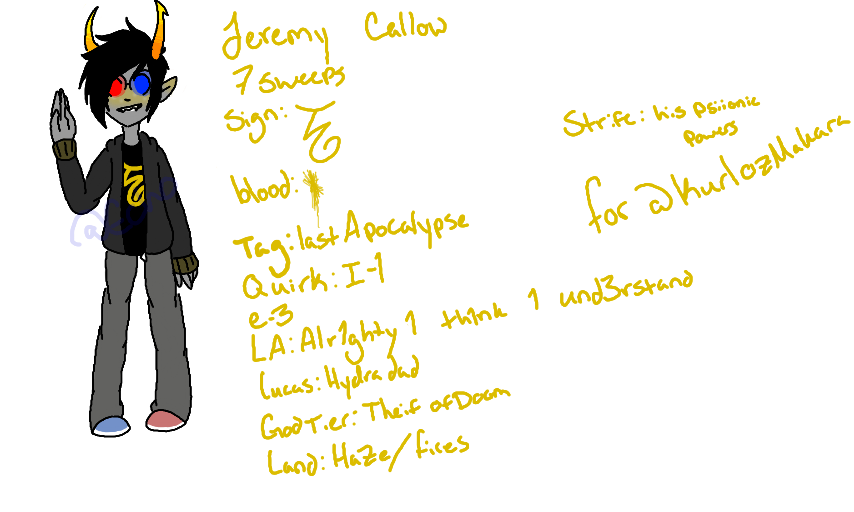 Jeremy Callow
7 sweeps
Sign:
blood:
Tag: last Apocalypse
Quirk: I-1
e-3
LA: Alr1ghty 1 th1nk 1 und3rstand
Lucas: Hydra dad
God Tier: Theif of Doom
Land: Haze/fires
Strife: his psiionic
powers
for @KurlozMakara